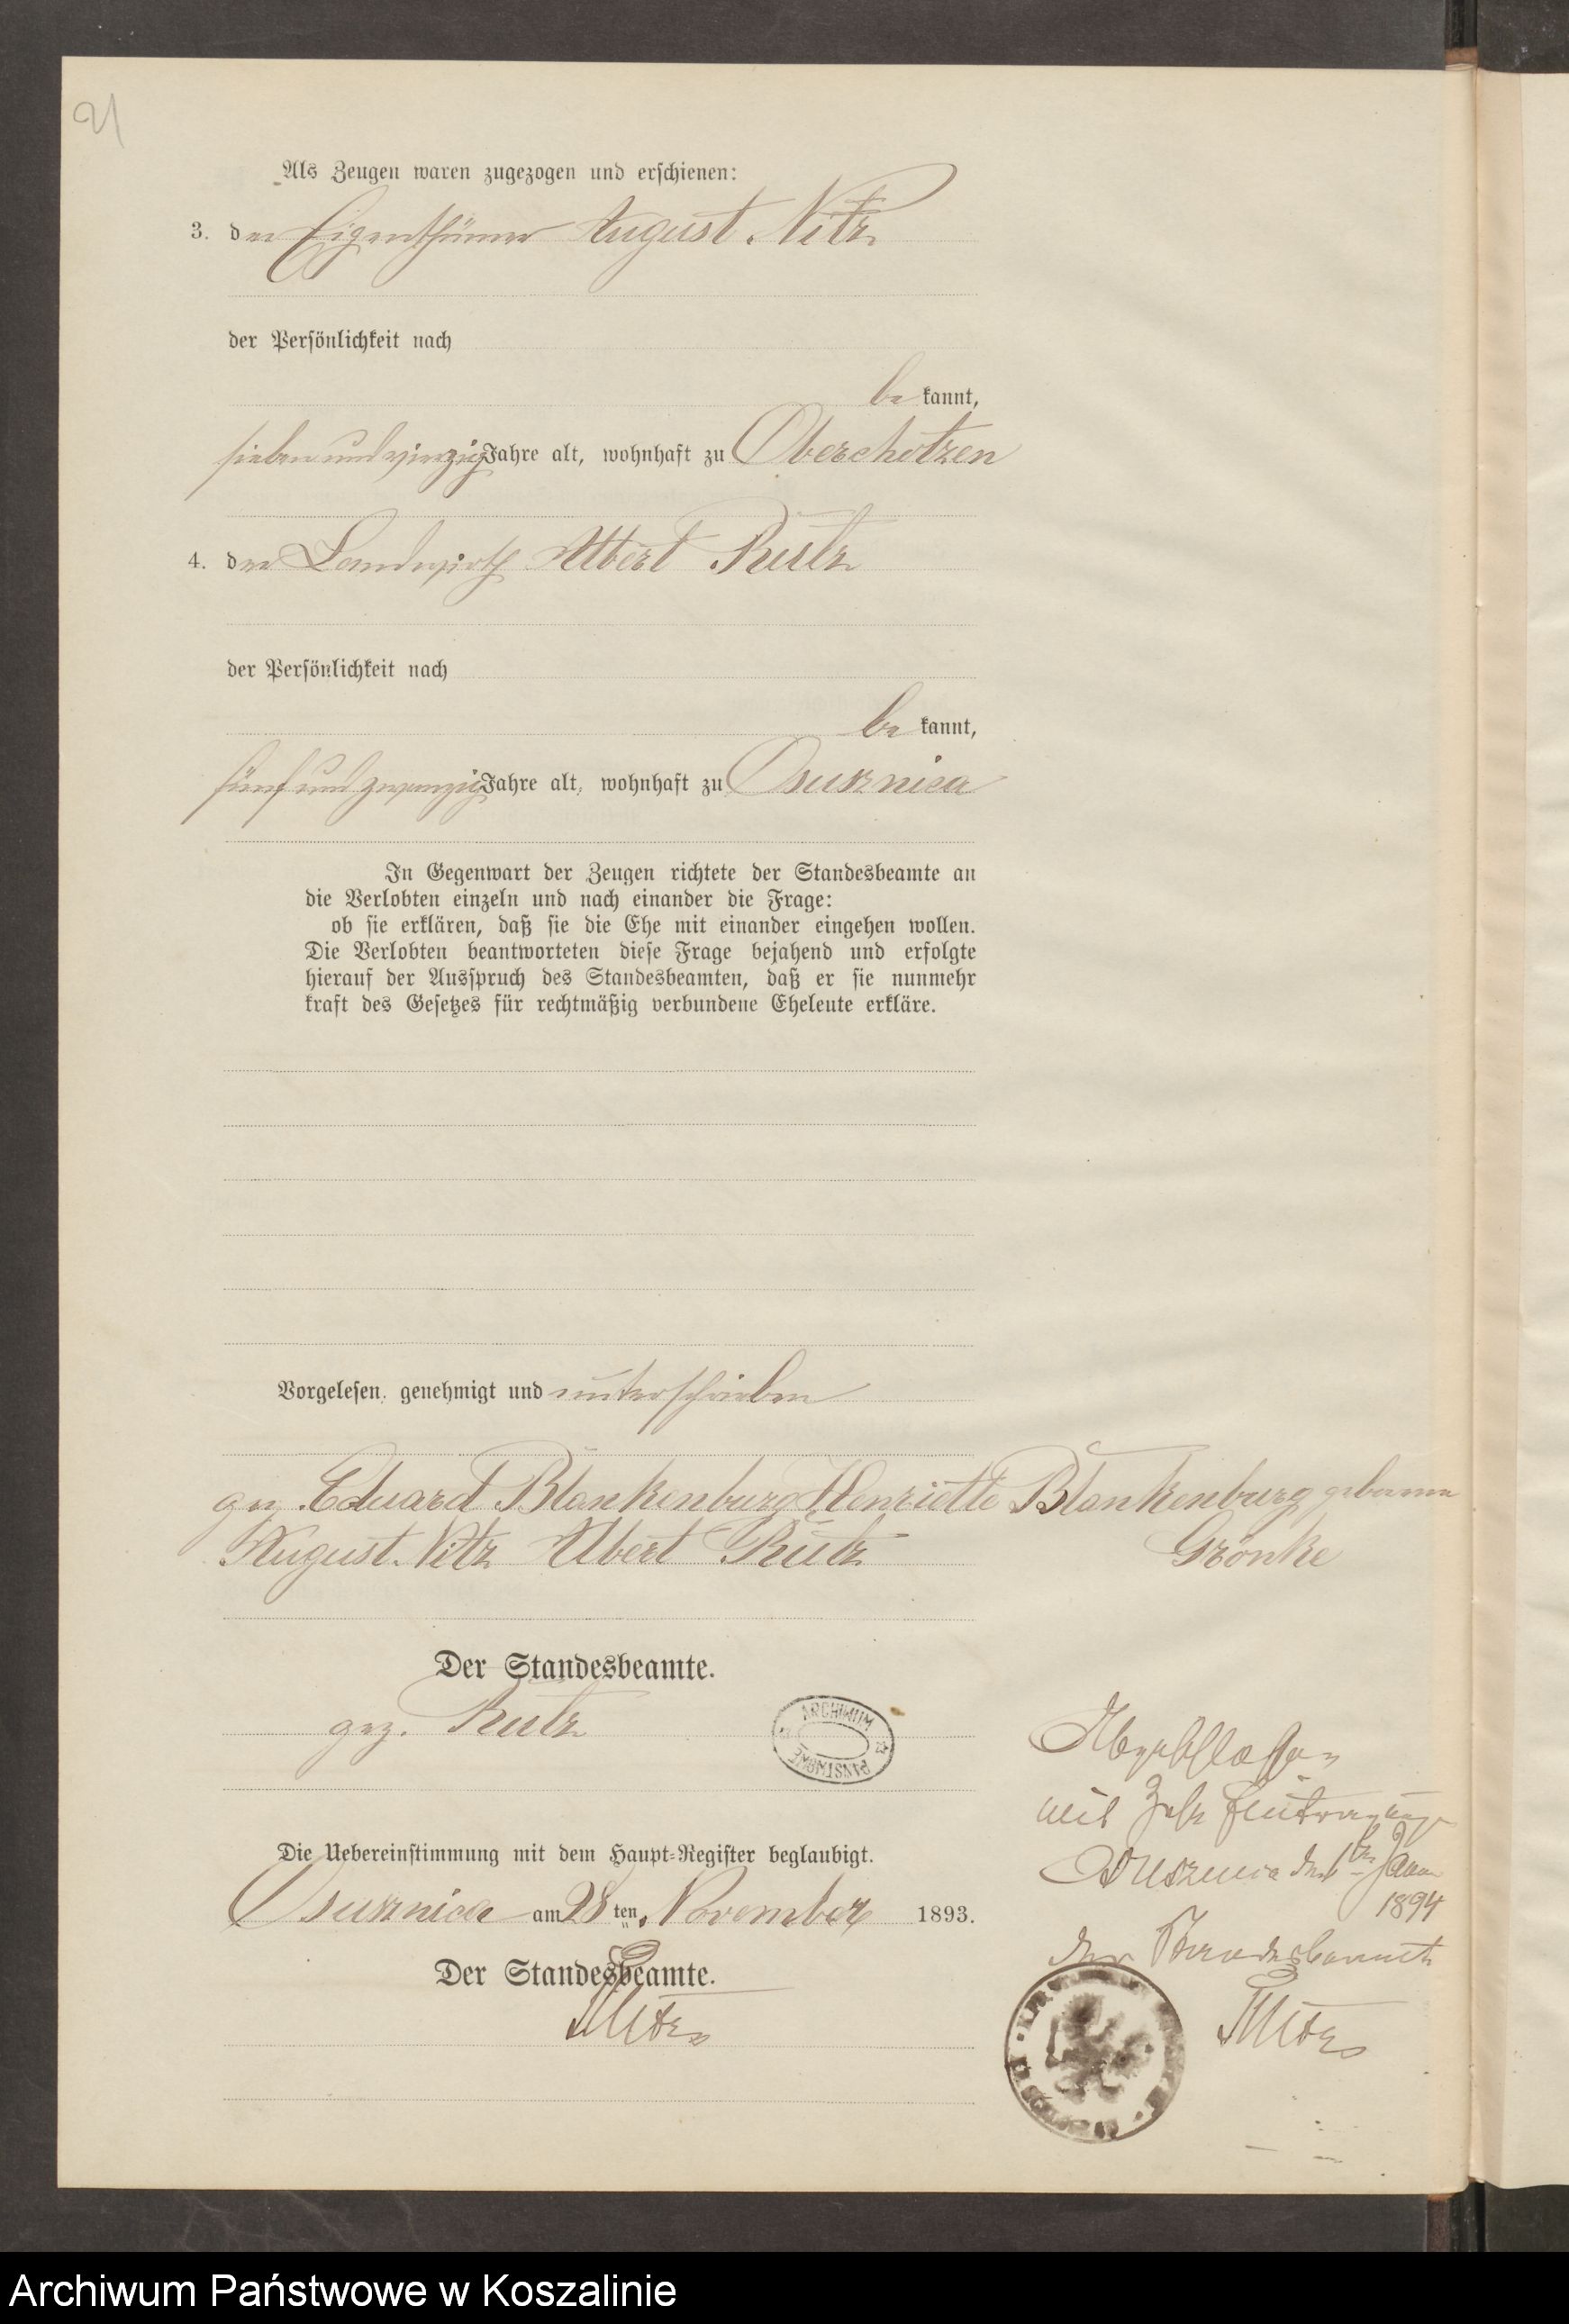 21
Als Zeugen waren zugezogen und erschienen:
3. der Eigenthümer August Nitz
der Persönlichkeit nach
be kannt,
sieben und vierzig Jahre alt, wohnhaft zu Oberchotzen
4. der Landwirth Albert Rutz
der Persönlichkeit nach
be kannt,
fünf und zwanzig Jahre alt, wohnhaft zu Osusznica
In Gegenwart der Zeugen richtete der Standesbeamte an
die Verlobten einzeln und nach einander die Frage:
ob sie erklären, daß sie die Ehe mit einander eingehen wollen.
Die Verlobten beantworteten diese Frage bejahend und erfolgte
hierauf der Ausspruch des Standesbeamten, daß er sie nunmehr
kraft des Gesetzes für rechtmäßig verbundene Eheleute erkläre.
Vorgelesen, genehmigt und unterschrieben
gez. Eduard Blankenburg Henriette Blankenburg geborene
August Nitz Albert Rutz Gronke
Der Standesbeamte.
gez. Rutz
ARCHIWUM PAŃSTWOWE
Die Uebereinstimmung mit dem Haupt-Register beglaubigt.
Osusznica am 28ten November 1893.
Der Standesbeamte.
Rutz
Abgeschlossen
mit Eintragungen
Osusznica den 1ten Januar
1894
Der Standesbeamte
Rutz
Archiwum Państwowe w Koszalinie